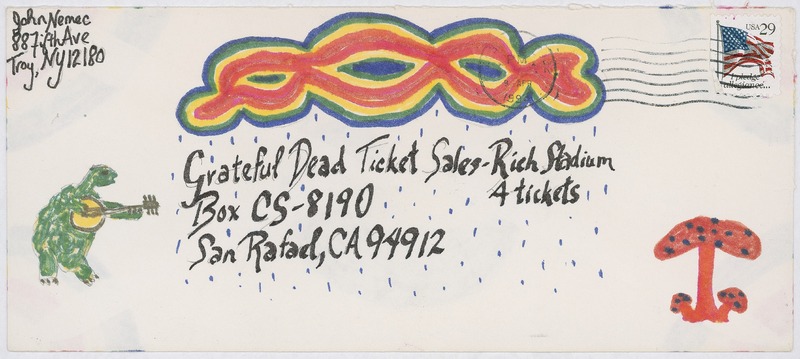 John Nemec
887 7th Ave
Troy, NY 12180
USA 29
I pledge
allegiance...
Grateful Dead Ticket Sales-Rich Stadium
4 tickets
Box CS-8190
San Rafael, CA 94912